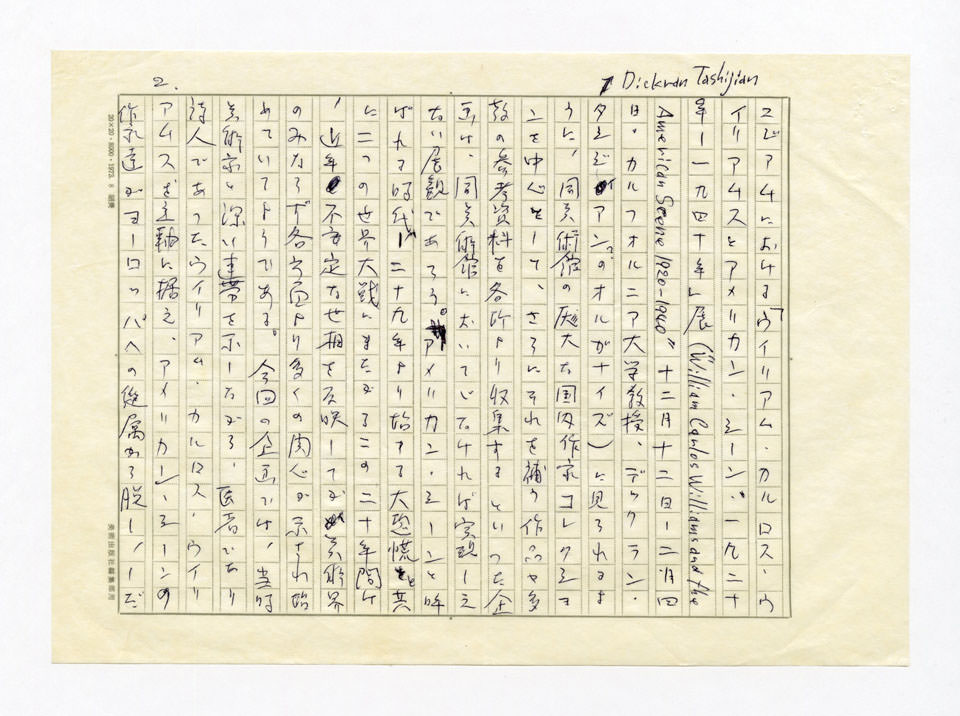 2.
Dickran Tashijian
ュビアムにおける「ウイリアム・カルロス・ウ
イリアムスとアメリカン・シーン、一九二十
年ー一九四十年」展(“William Carlos Williams and the
American Scene 1920-1940” 十二月十二日ー二月四
日。カルフォルニア大学教授、デックラン・
タシジアンのオルガナイズ)に見られるよ
うに、同美術館の厖大な国内作家コレクショ
ンを中心として、さらにそれを補う作品や多
数の参考資料を各所より収集するといった企
画は、同美術館においてでなければ実現しえ
ない展観であろう。アメリカン・シーンと呼
ばれる時代ー二十九年より始まる大恐慌と共
に二つの世界大戦にまたがるこの二十年間は
、近年不安定な世相を反映してか美術界
のみならず各方面より多くの関心が示され始
めているようである。今回の企画では、当時
美術家と深い連帯を示しながら、医者であり
詩人であったウイリアム・カルロス・ウイリ
アムスを主軸に据え、アメリカン・シーンの
作家達がヨーロッパへの従属から脱し、しだ
20×20・8000・1973. 8
美術出版社編集部用